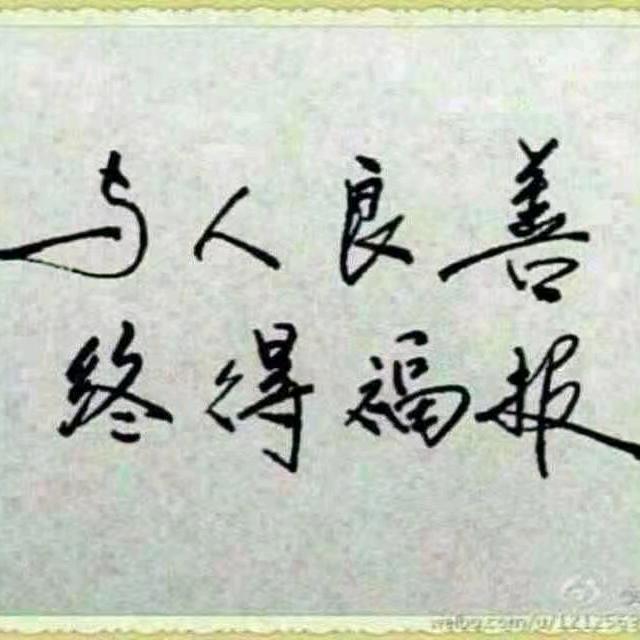 与人良善
终得福报
weibo.com/u/1212563